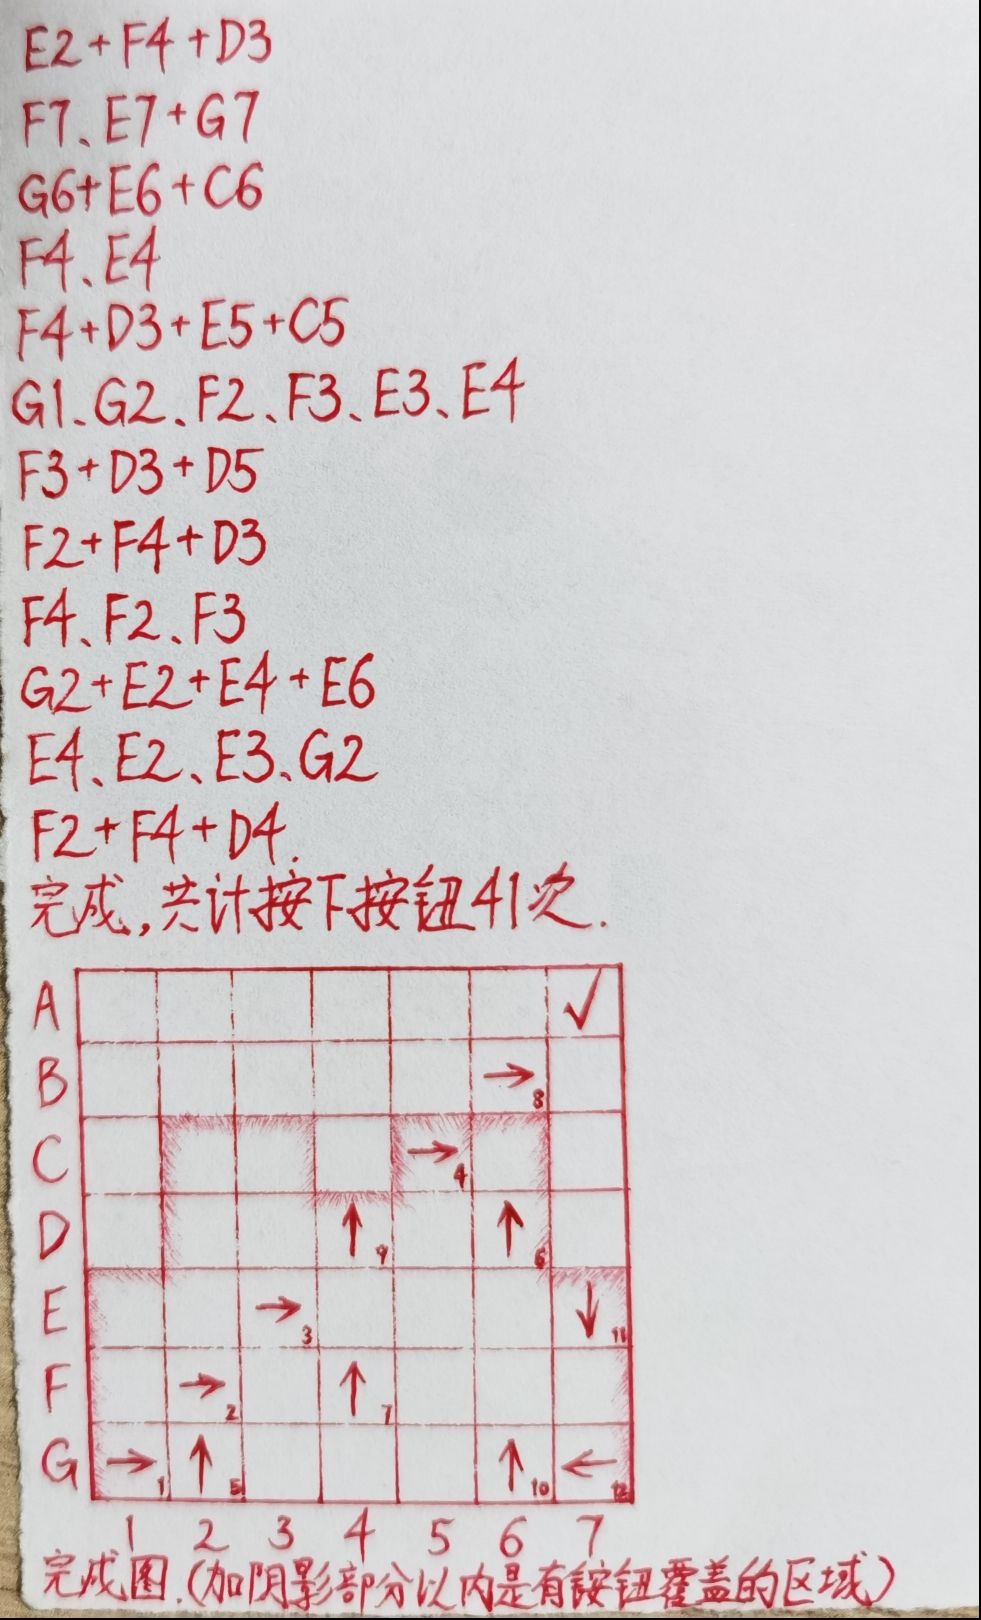 E2+F4+D3
F7、E7+G7
G6+E6+C6
F4、E4
F4+D3+E5+C5
G1、G2、F2、F3、E3、E4
F3+D3+D5
F2+F4+D3
F4、F2、F3
G2+E2+E4+E6
E4、E2、E3、G2
F2+F4+D4.
完成,共计按下按钮41次.
A √
B → 8
C → 4
D ↑ 9 ↑ 6
E → 3 ↓ 11
F → 2 ↑ 7
G → 1 ↑ 5 ↑ 10 ← 12
1 2 3 4 5 6 7
完成图.(加阴影部分以内是有按钮覆盖的区域)